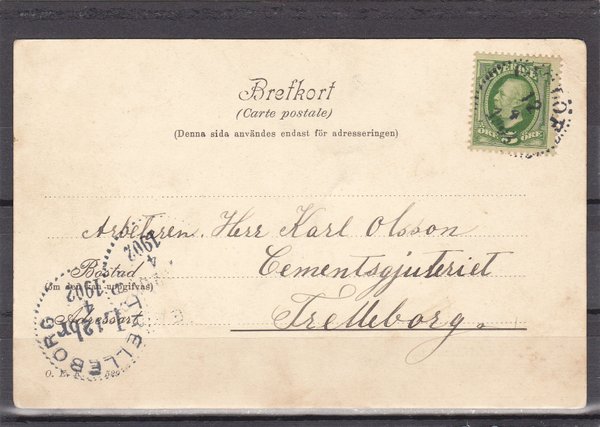 Brefkort
(Carte postale)
(Denna sida användes endast för adresseringen)
SVERIGE
ÖRE 5 ÖRE
LÖF
Arbetaren. Herr Karl Olsson
Bostad
(om den kan uppgifvas)
Cementsgjuteriet
Adressort
Trelleborg.
1902
4
TRELLEBORG
1902
4
12br